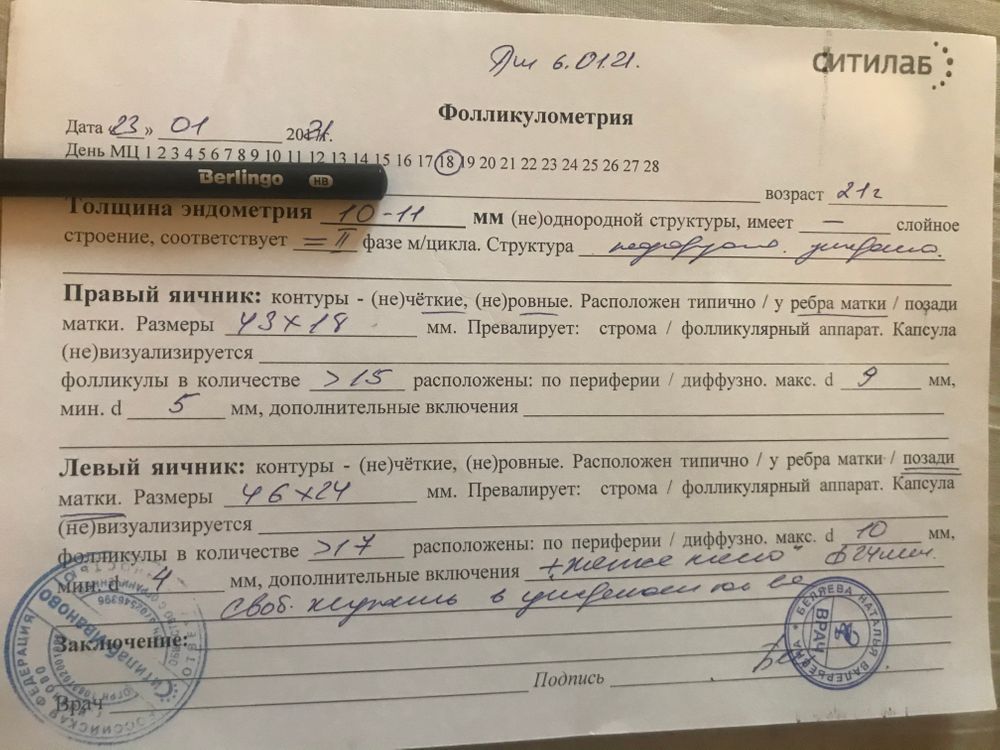 Дпм 6.01.21.
СИТИЛАБ
Фолликулометрия
Дата «23» 01 2021г.
День МЦ 1 2 3 4 5 6 7 8 9 10 11 12 13 14 15 16 17 18 19 20 21 22 23 24 25 26 27 28
Berlingo HB
возраст 21г
Толщина эндометрия 10-11 мм (не)однородной структуры, имеет — слойное
строение, соответствует = II фазе м/цикла. Структура
Правый яичник: контуры - (не)чёткие, (не)ровные. Расположен типично / у ребра матки / позади
матки. Размеры 43 х 18 мм. Превалирует: строма / фолликулярный аппарат. Капсула
(не)визуализируется
фолликулы в количестве >15 расположены: по периферии / диффузно. макс. d 9 мм,
мин. d 5 мм, дополнительные включения
Левый яичник: контуры - (не)чёткие, (не)ровные. Расположен типично / у ребра матки / позади
матки. Размеры 46 х 24 мм. Превалирует: строма / фолликулярный аппарат. Капсула
(не)визуализируется
фолликулы в количестве >17 расположены: по периферии / диффузно. макс. d 10 мм,
мин. d 4 мм, дополнительные включения + желтое тело ф 24мм.
своб. жидкость в
Заключение:
Подпись
Врач
БЕЛЯЕВА НАТАЛЬЯ ВАЛЕРЬЕВНА
ВРАЧ
РОССИЙСКАЯ ФЕДЕРАЦИЯ
Ситилаб Иваново